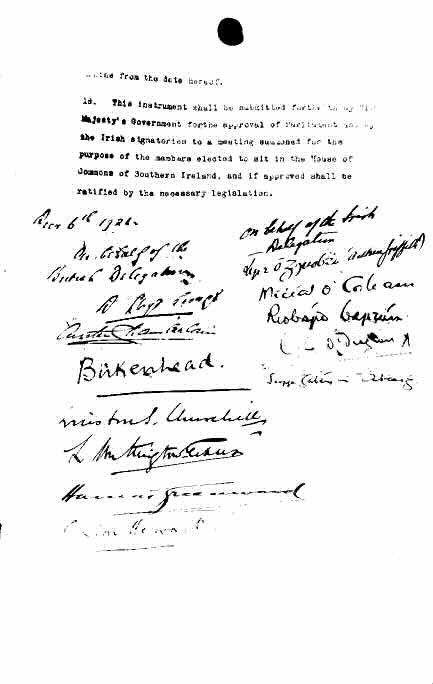 from the date hereof.
18. This instrument shall be submitted forthwith by His
Majesty's Government for the approval of Parliament and by
the Irish signatories to a meeting summoned for the
purpose of the members elected to sit in the House of
Commons of Southern Ireland, and if approved shall be
ratified by the necessary legislation.
Decr 6th 1921.
On behalf of the
British Delegation
D Lloyd George
Austen Chamberlain
Birkenhead.
Winston S. Churchill
L Worthington-Evans
Hamar Greenwood
Gordon Hewart
On behalf of the Irish
Delegation
Art Ó Gríobhtha (Arthur Griffith)
Micheál Ó Coileain
Riobárd Bartún